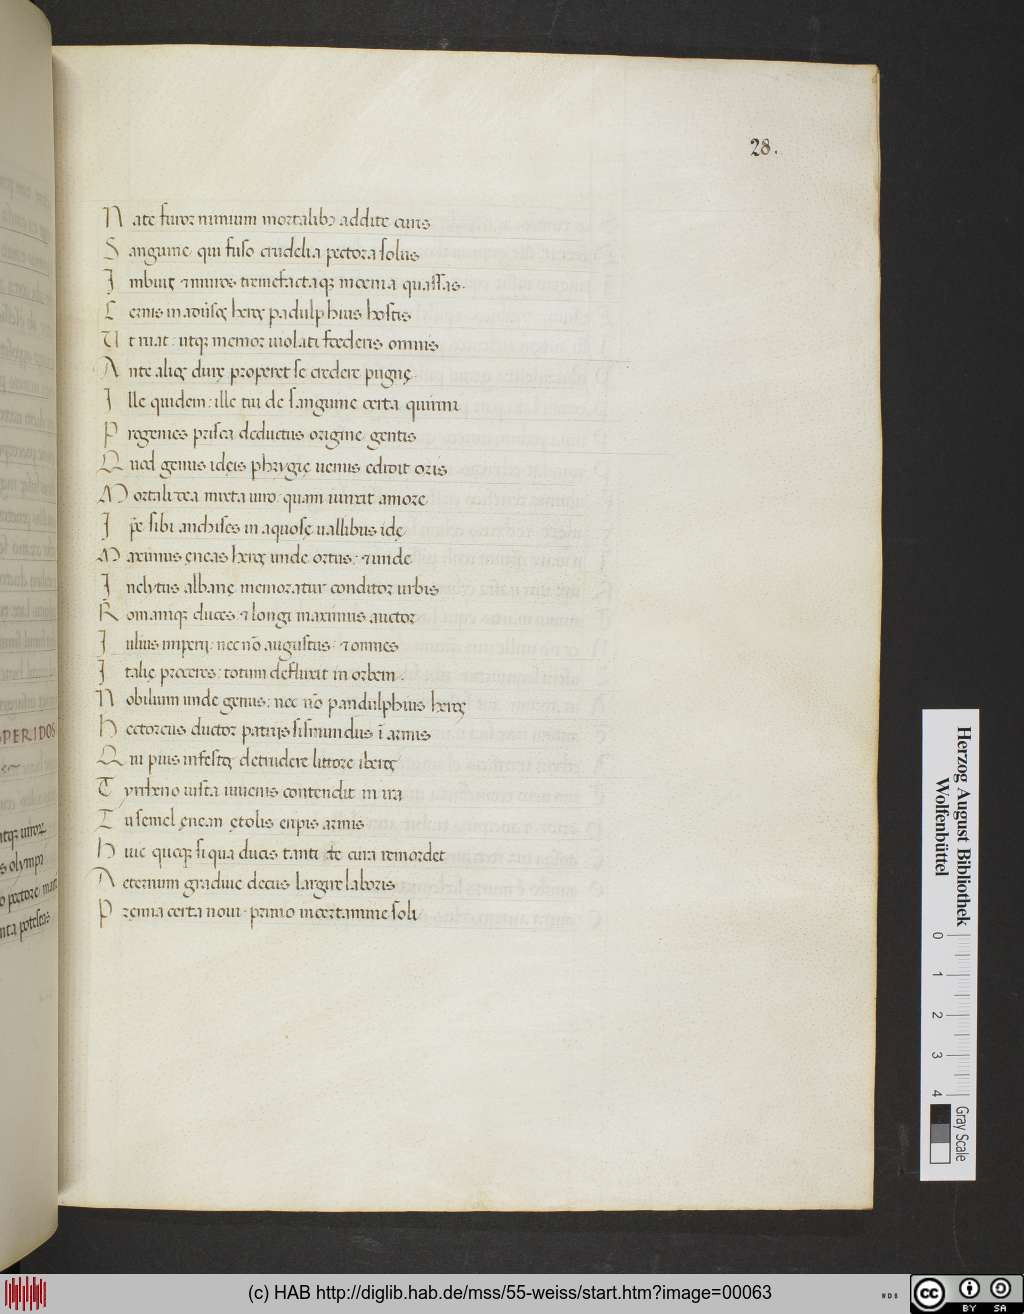 28.
N ate furor nimium mortalibꝫ addite curis
S anguine qui fuso crudelia pectora solus
I mbuit ⁊ muros tremefactaqꝫ moenia quassas.
C ernis in herǫs padulphius hostis
U t ruat: utqꝫ memor uiolati foederis omnis
A nte alios durę properet se credere pugnę
I lle quidem: ille tui de sanguine certa quirini
P rogenies prisca deductus origine gentis
Q uod genus idęis phrygię uenus edidit oris
M ortali dea mixta uiro quam iunxit amore
I p̃e sibi anchises in aquosę uallibus idę
M aximus ęneas herǫs unde ortus: ⁊ unde
I nclytus albanę memoratur conditor urbis
R omaniqꝫ duces ⁊ longi maximus auctor
I ulius imperij: nec nō augustus: ⁊ omnes
I talię proceres: totum defluxit in orbem.
N obilium unde genus: nec nō pandulphius herǫs
H ectoreus ductor patrijs sismundus ī armis
Q ui pius infestǫs detrudere littore iberǫs
T yrrheno uista iuuenis contendit in ira
T u semel ęnean ętolis eripis armis
H uic quoqꝫ si qua ducis tanti te cura remordet
A eternum gradiue decus largire laboris
P ręmia certa noui: primo in certamine soli
PERIDOS
olympi
pectore
potestas
Herzog August Bibliothek
Wolfenbüttel
0 1 2 3 4
Gray Scale
(c) HAB http://diglib.hab.de/mss/55-weiss/start.htm?image=00063
cc
BY SA